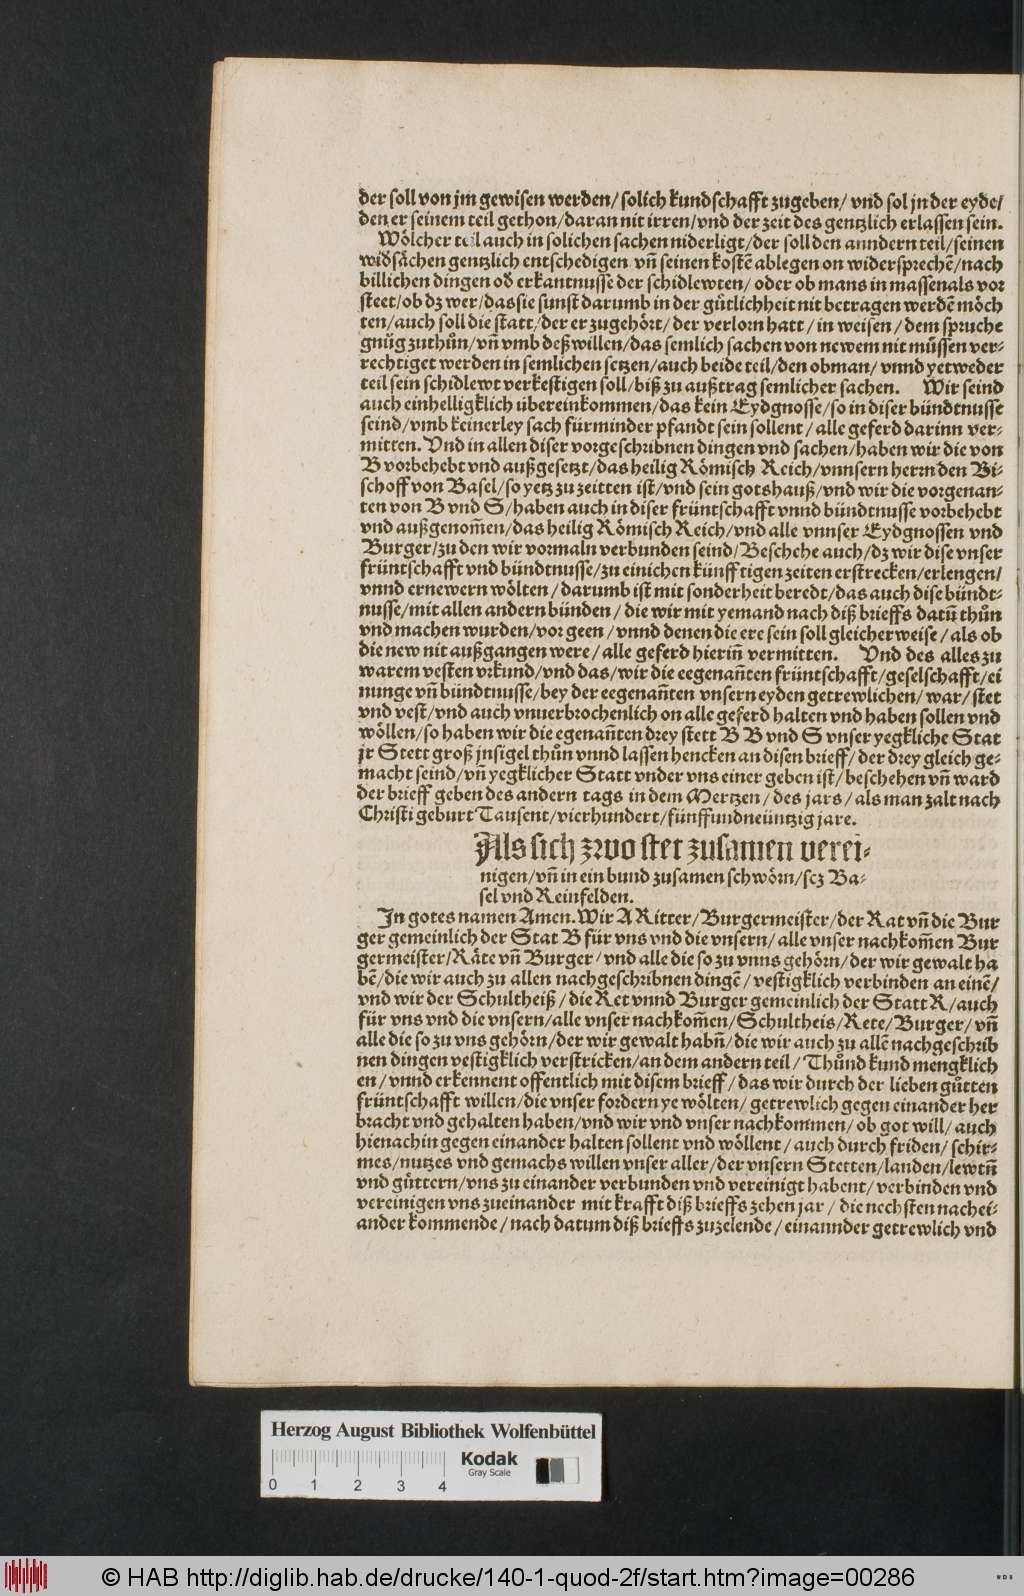 der soll von jm gewisen werden/ solich kundschafft zugeben/ vnd sol jn der eyde/
den er seinem teil gethon/daran nit irren/vnd der zeit des gentzlich erlassen sein.
Wölcher teil auch in solichen sachen niderligt/der soll den anndern teil/seinen
widsächen gentzlich entschedigen vñ seinen kostē ablegen on widersprechē/nach
billichen dingen od erkantnusse der schidlewten/ oder ob mans in massen als vor
steet/ob dz wer/das sie sunst darumb in der gůtlichheit nit betragen werdē möch
ten/auch soll die statt/der er zugehört/ der verlorn hatt/ in weisen/ dem spruche
gnüg zuthůn/vñ vmb deß willen/das semlich sachen von newem nit müssen ver-
rechtiget werden in semlichen setzen/auch beide teil/den obman/ vnnd yetweder
teil sein schidlewt verkestigen soll/biß zu außtrag semlicher sachen. Wir seind
auch einhelligklich übereinkommen/das kein Eydgnosse/so in diser bündtnusse
seind/vmb keinerley sach fürminder pfandt sein sollent/ alle geferd darinn ver-
mitten. Vnd in allen diser vorgeschribnen dingen vnd sachen/haben wir die von
B vorbehebt vnd außgesetzt/das heilig Römisch Reich/vnnsern herrn den Bi-
schoff von Basel/so yetz zu zeitten ist/vnd sein gotshauß/vnd wir die vorgenan-
ten von B vnd S/haben auch in diser früntschafft vnnd bündtnusse vorbehebt
vnd außgenom̄en/das heilig Römisch Reich/vnd alle vnnser Eydgnossen vnd
Burger/zu den wir vormaln verbunden seind/Beschehe auch/dz wir dise vnser
früntschafft vnd bündtnusse/zu einichen künfftigen zeiten erstrecken/erlengen/
vnnd ernewern wölten/ darumb ist mit sonderheit beredt/das auch dise bündt-
nusse/mit allen andern bünden/ die wir mit yemand nach diß brieffs datū thůn
vnd machen wurden/vor geen/ vnnd denen die ere sein soll gleicherweise/ als ob
die new nit außgangen were/ alle geferd hieriñ vermitten. Vnd des alles zu
warem vesten vrkund/vnd das/wir die eegenañten früntschafft/geselschafft/ei
nunge vñ bündtnusse/bey der eegenañten vnsern eyden getrewlichen/ war/ stet
vnd vest/vnd auch vnuerbrochenlich on alle geferd halten vnd haben sollen vnd
wöllen/so haben wir die egenañten drey stett B B vnd S vnser yegkliche Stat
jr Stett groß jnsigel thůn vnnd lassen hencken an disen brieff/ der drey gleich ge-
macht seind/vñ yegklicher Statt vnder vns einer geben ist/ beschehen vñ ward
der brieff geben des andern tags in dem Mertzen/ des jars/ als man zalt nach
Christi geburt Tausent/vierhundert/fünffundneüntzig jare.
Als sich zwo stet zusamen verei-
nigen/vñ in ein bund zusamen schwörn/scz Ba-
sel vnd Reinfelden.
In gotes namen Amen. Wir A Ritter/Burgermeister/der Rat vñ die Bur
ger gemeinlich der Stat B für vns vnd die vnsern/ alle vnser nachkom̄en Bur
germeister/Räte vñ Burger/ vnd alle die so zu vnns gehörn/der wir gewalt ha
bē/die wir auch zu allen nachgeschribnen dingē/ vestigklich verbinden an einē/
vnd wir der Schultheiß/ die Ret vnnd Burger gemeinlich der Statt R/auch
für vns vnd die vnsern/alle vnser nachkom̄en/Schultheis/Rete/Burger/ vñ
alle die so zu vns gehörn/der wir gewalt habñ/die wir auch zu allē nachgeschrib
nen dingen vestigklich verstricken/an dem andern teil/ Thůnd kund mengklich
en/ vnnd erkennent offentlich mit disem brieff/ das wir durch der lieben gůtten
früntschafft willen/die vnser fordern ye wölten/ getrewlich gegen einander her
bracht vnd gehalten haben/vnd wir vnd vnser nachkommen/ ob got will/ auch
hienachin gegen einander halten sollent vnd wöllent/ auch durch friden/ schir-
mes/nutzes vnd gemachs willen vnser aller/der vnsern Stetten/landen/lewtñ
vnd güttern/vns zu einander verbunden vnd vereinigt habent/ verbinden vnd
vereinigen vns zueinander mit krafft diß brieffs zehen jar/ die nechsten nachei-
ander kommende/ nach datum diß brieffs zuzelende/ einannder getrewlich vnd
Herzog August Bibliothek Wolfenbüttel
Kodak
Gray Scale
0 1 2 3 4
© HAB http://diglib.hab.de/drucke/140-1-quod-2f/start.htm?image=00286